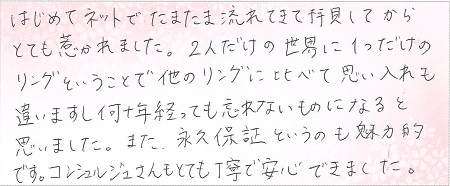 はじめてネットでたまたま流れてきて拝見してから
とても惹かれました。2人だけの世界に1つだけの
リングということで他のリングに比べて思い入れも
違いますし何十年経っても忘れないものになると
思いました。また、永久保証というのも魅力的
です。コンシェルジュさんもとても丁寧で安心できました。